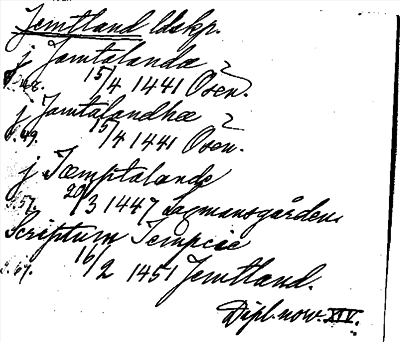 Jemtland ldskp.
j Jamtalanda
s. 48. 15/4 1441 Osen.
j Jamtalandhæ
s. 49. 15/4 1441 Osen.
j Jæmptalande
s. 57. 20/3 1447 Lagmansgården
Scriptum Jempcie
s. 67. 16/2 1451 Jemtland.
Dipl. norv. XIV.